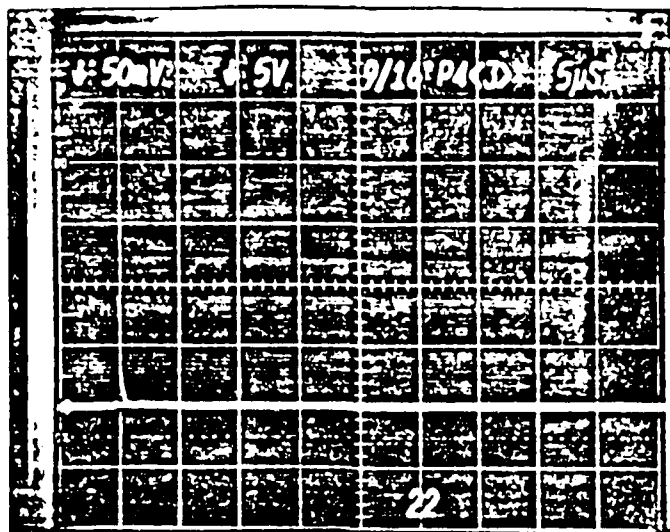 ↓ 50mV ↓ 5V 9/16 P4<D> 5µS
22